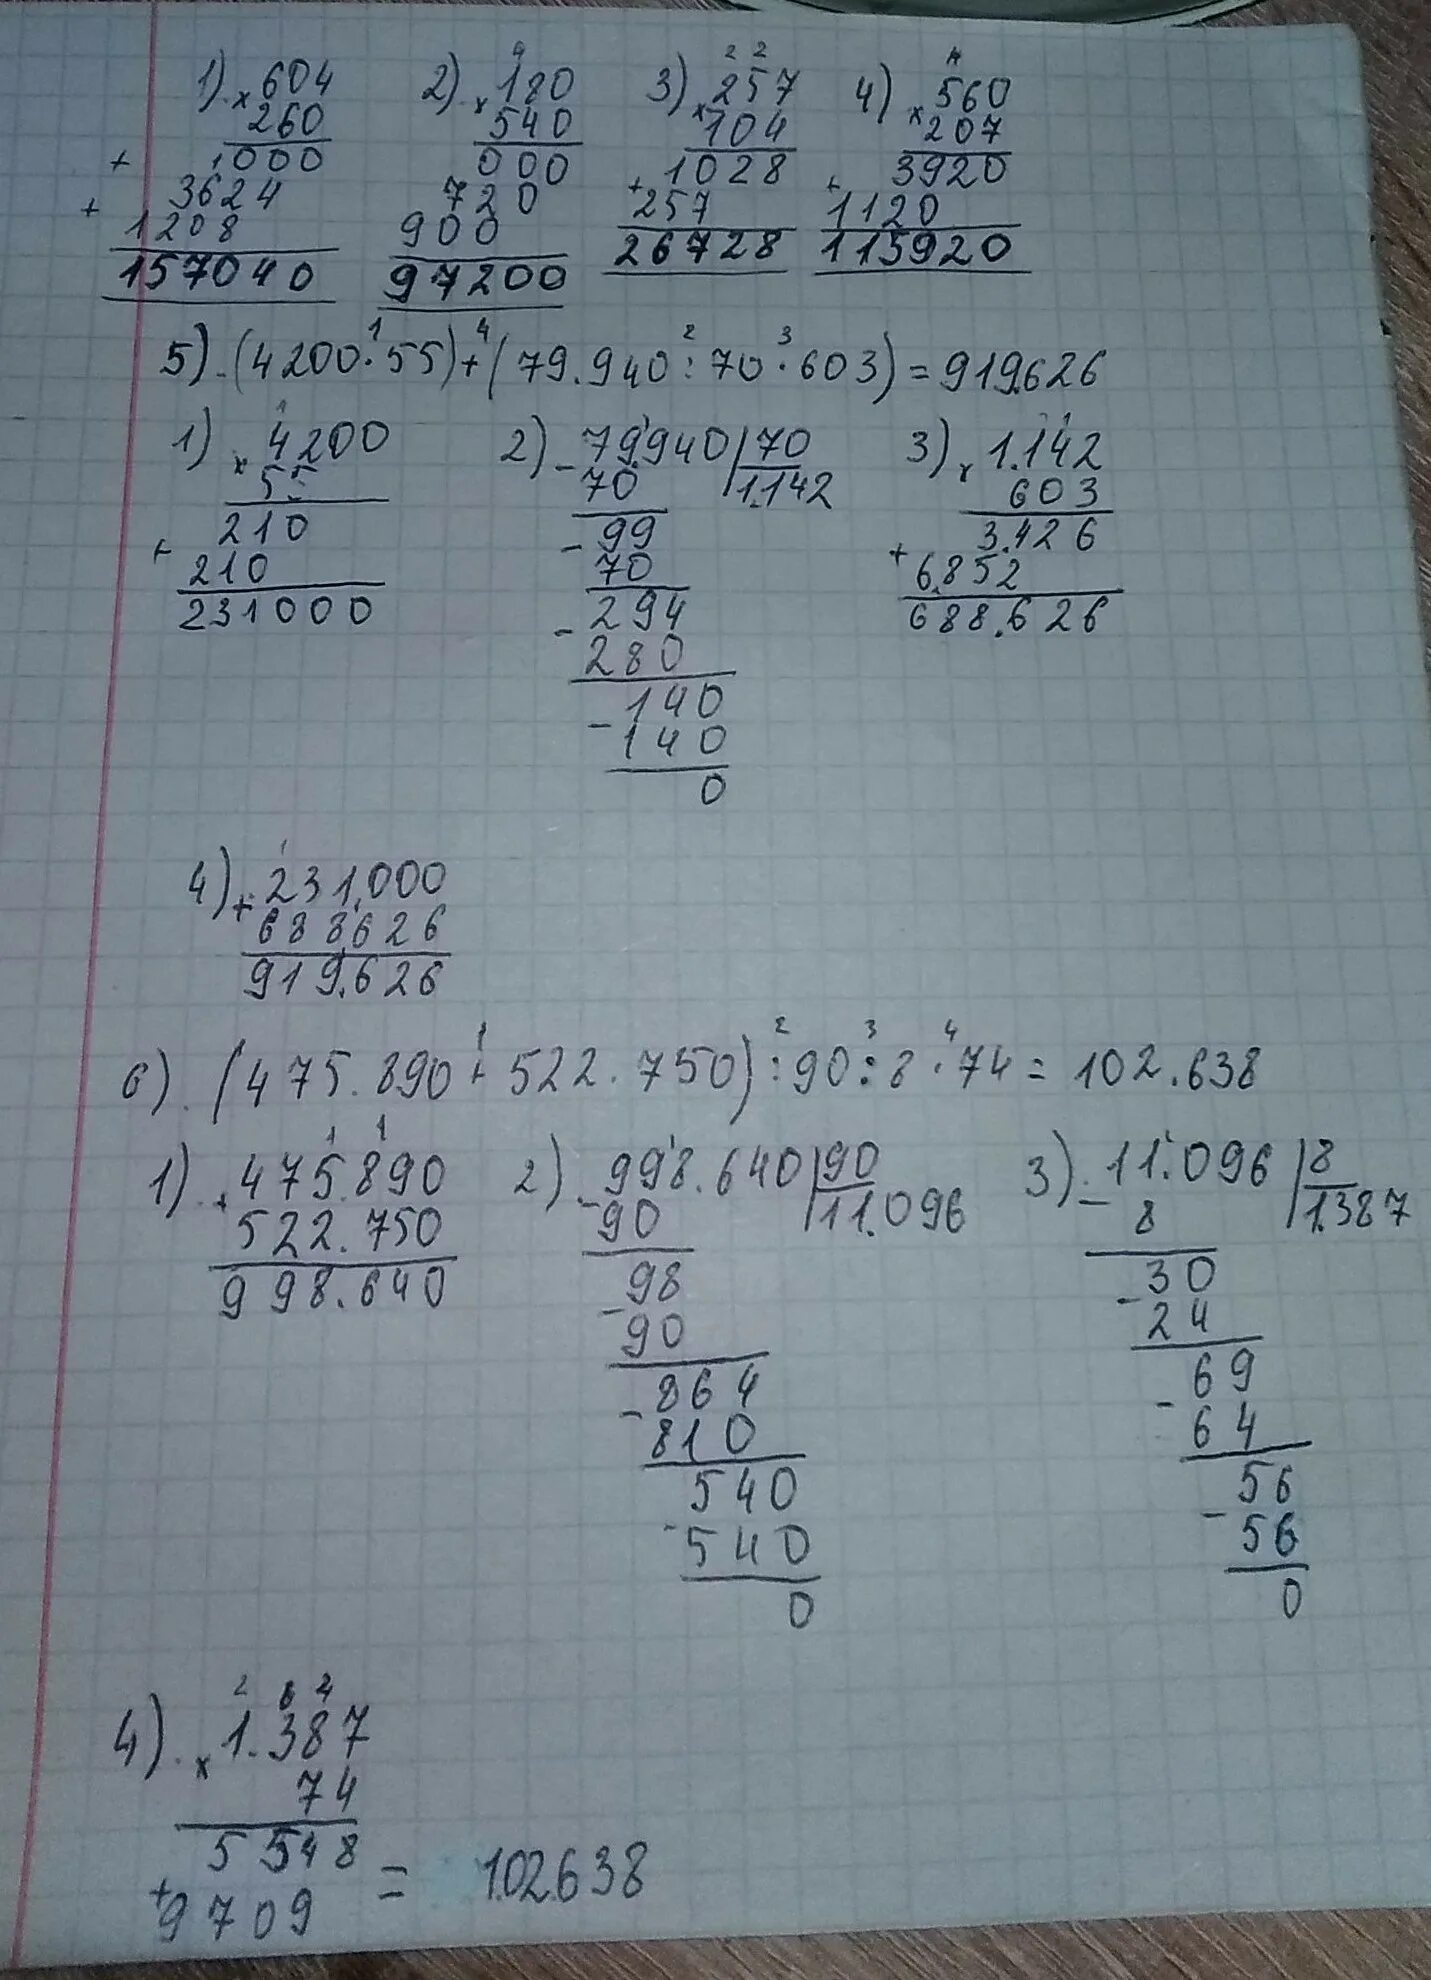 1). ×604 2). ×180 3) ×257 4) ×560
260 540 104 207
+ 000 000 1028 3920
+ 3624 720 + 257 + 1120
1208 900 26728 115920
157040 97200
5). (4200·55)+(79.940:70·603)=919.626
1) ×4200 2) -79.940 | 70 3) ×1.142
55 70 1.142 603
210 -99 3.426
+ 210 70 + 6.852
231000 -294 688.626
280
-140
140
0
4) + 231.000
688626
919.626
6). (475.890+522.750):90:8·74=102.638
1). +475.890 2) -998.640 | 90 3). -11.096 | 8
522.750 90 11.096 8 1.387
998.640 -98 -30
90 24
-864 -69
810 64
-540 -56
540 56
0 0
4). ×1.387
74
5548
+9709 = 102.638